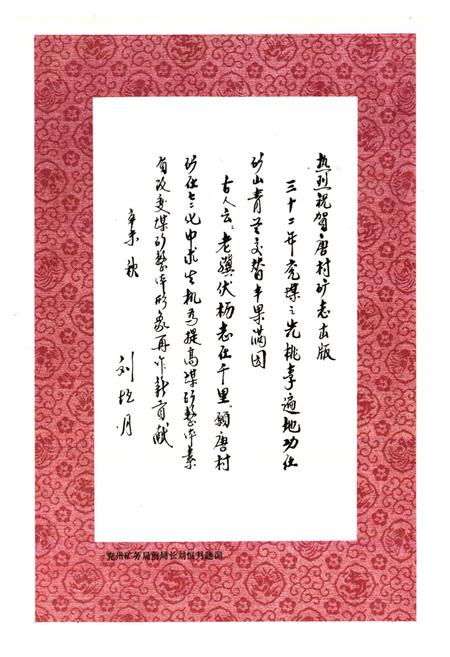 热烈祝贺唐村矿志出版
三十二年兖煤之先桃李遍地功在
矿山青兰交替丰果满园
古人云：老骥伏枥志在千里，愿唐村
矿在七二化中求生机为提高煤矿整体素
有改变煤矿整体形象再作新贡献
辛未秋
刘恒月
兖州矿务局前局长刘恒月题词